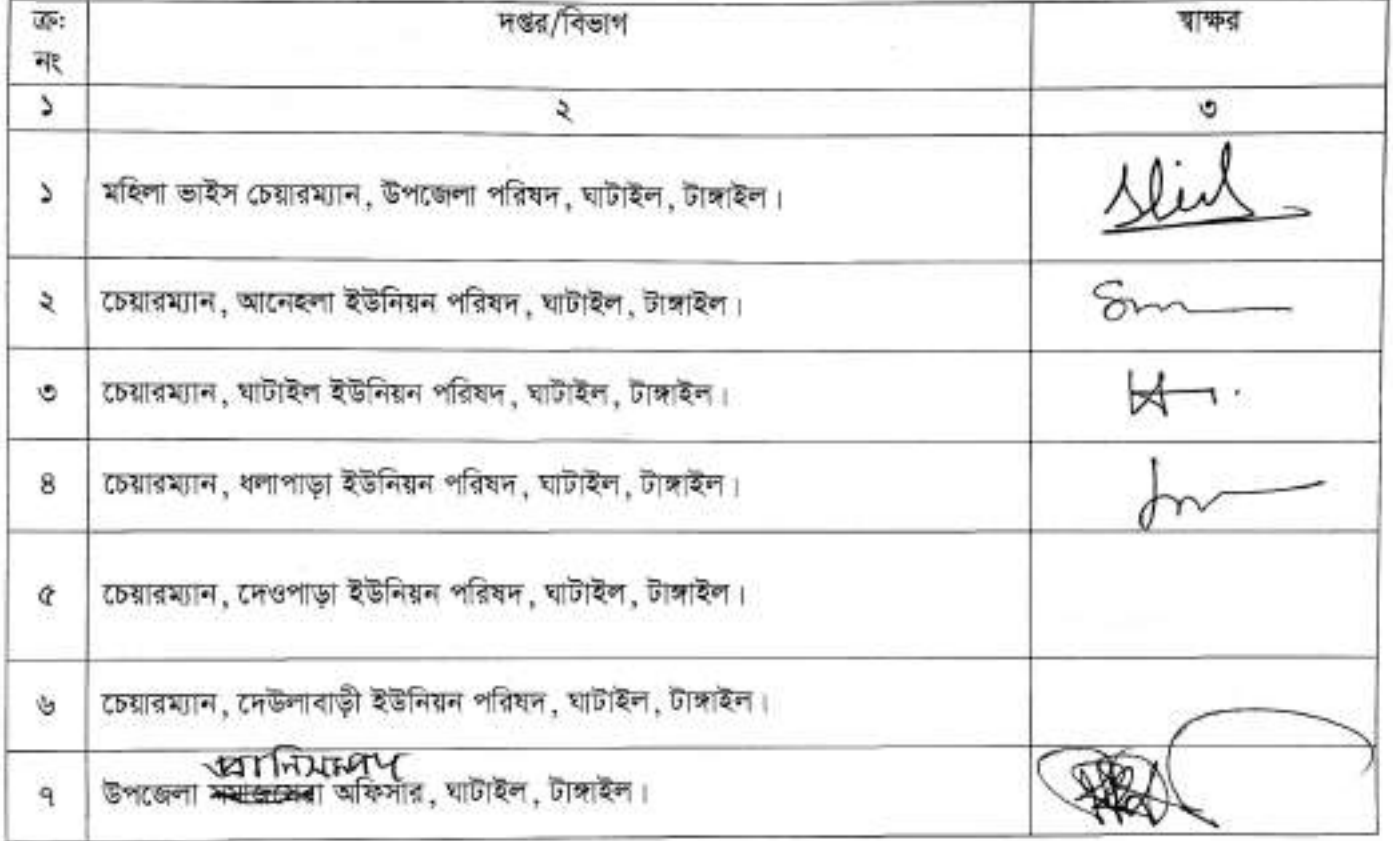 ক্রঃ নং দপ্তর/বিভাগ স্বাক্ষর
১ ২ ৩
১ মহিলা ভাইস চেয়ারম্যান, উপজেলা পরিষদ, ঘাটাইল, টাঙ্গাইল।
২ চেয়ারম্যান, আনেহলা ইউনিয়ন পরিষদ, ঘাটাইল, টাঙ্গাইল।
৩ চেয়ারম্যান, ঘাটাইল ইউনিয়ন পরিষদ, ঘাটাইল, টাঙ্গাইল।
৪ চেয়ারম্যান, ধলাপাড়া ইউনিয়ন পরিষদ, ঘাটাইল, টাঙ্গাইল।
৫ চেয়ারম্যান, দেওপাড়া ইউনিয়ন পরিষদ, ঘাটাইল, টাঙ্গাইল।
৬ চেয়ারম্যান, দেউলাবাড়ী ইউনিয়ন পরিষদ, ঘাটাইল, টাঙ্গাইল।
প্রানিসম্পদ
৭ উপজেলা সমাজসেবা অফিসার, ঘাটাইল, টাঙ্গাইল।